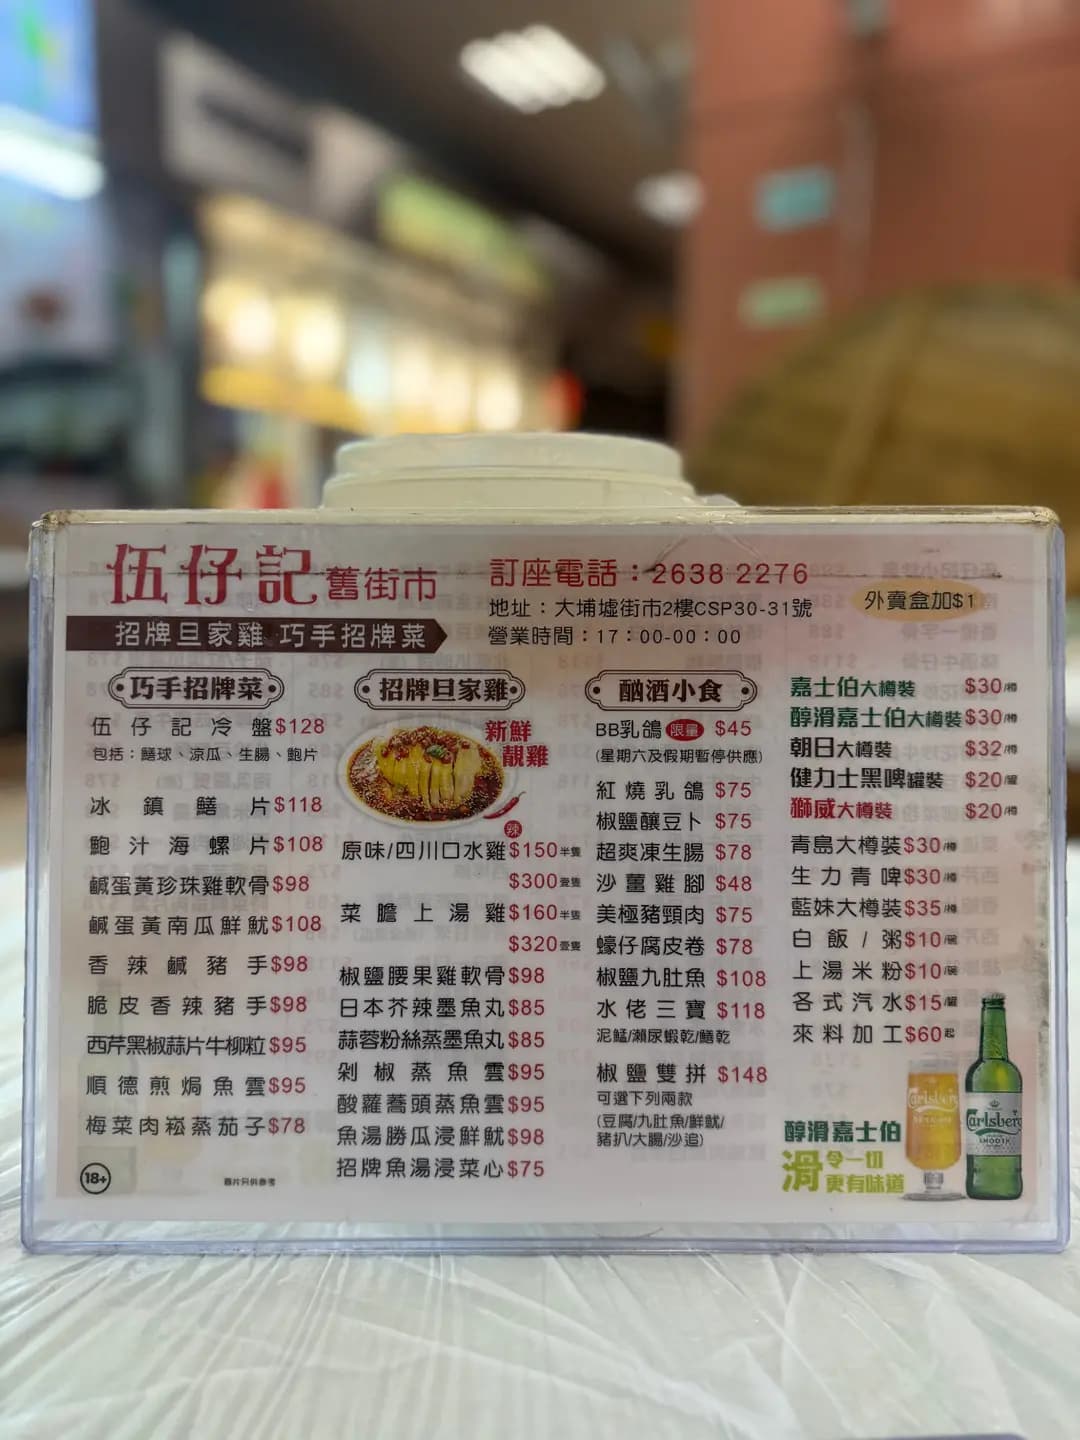 伍仔記舊街市
訂座電話：2638 2276
地址：大埔墟街市2樓CSP30-31號
營業時間：17：00-00：00
外賣盒加$1
招牌旦家雞 巧手招牌菜
巧手招牌菜
伍仔記冷盤$128
包括：鱔球、涼瓜、生腸、鮑片
冰鎮鱔片$118
鮑汁海螺片$108
鹹蛋黃珍珠雞軟骨$98
鹹蛋黃南瓜鮮魷$108
香辣鹹豬手$98
脆皮香辣豬手$98
西芹黑椒蒜片牛柳粒$95
順德煎焗魚雲$95
梅菜肉崧蒸茄子$78
18+
圖片只供參考
招牌旦家雞
新鮮
靚雞
辣
原味/四川口水雞$150半隻
$300壹隻
菜膽上湯雞$160半隻
$320壹隻
椒鹽腰果雞軟骨$98
日本芥辣墨魚丸$85
蒜蓉粉絲蒸墨魚丸$85
剁椒蒸魚雲$95
酸蘿蕎頭蒸魚雲$95
魚湯勝瓜浸鮮魷$98
招牌魚湯浸菜心$75
酗酒小食
BB乳鴿 限量 $45
(星期六及假期暫停供應)
紅燒乳鴿 $75
椒鹽釀豆卜 $75
超爽凍生腸 $78
沙薑雞腳 $48
美極豬頸肉 $75
蠔仔腐皮卷 $78
椒鹽九肚魚 $108
水佬三寶 $118
泥鯭/瀨尿蝦乾/鱔乾
椒鹽雙拼 $148
可選下列兩款
(豆腐/九肚魚/鮮魷/
豬扒/大腸/沙追)
嘉士伯大樽裝 $30/樽
醇滑嘉士伯大樽裝$30/樽
朝日大樽裝 $32/樽
健力士黑啤罐裝 $20/罐
獅威大樽裝 $20/樽
青島大樽裝$30/樽
生力青啤$30/樽
藍妹大樽裝$35/樽
白飯/粥$10/碗
上湯米粉$10/碗
各式汽水$15/罐
來料加工$60起
醇滑嘉士伯
滑令一切
更有味道
Carlsberg
Carlsberg
SMOOTH